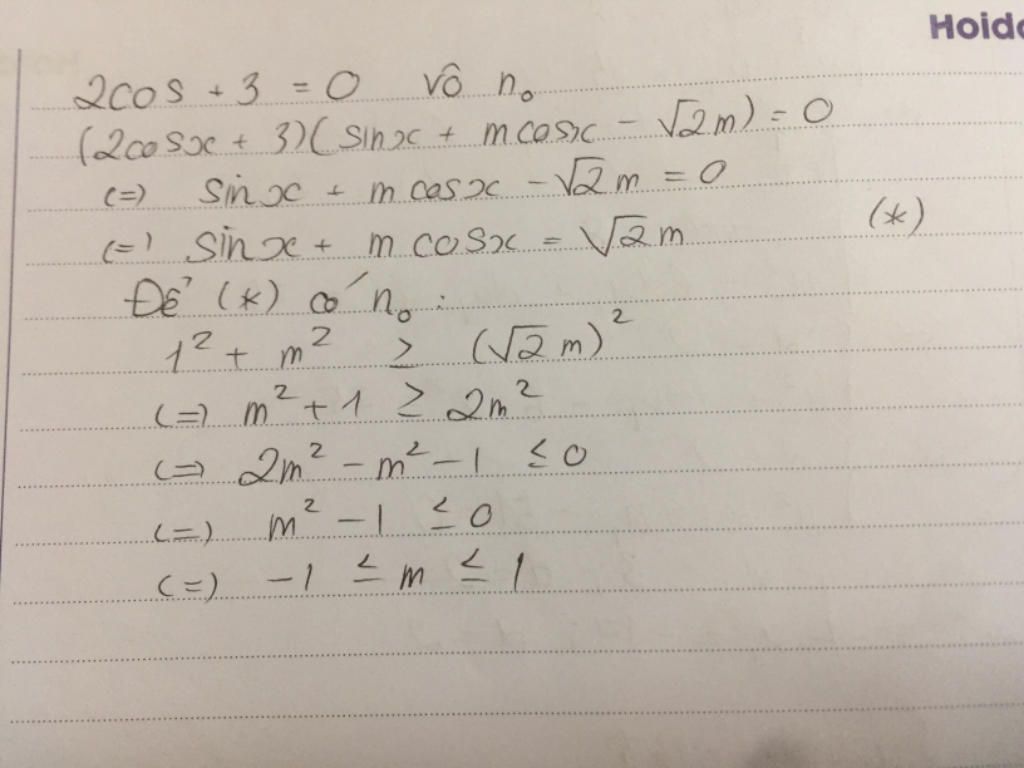 Hoido
2cos + 3 = 0 vô n₀
(2cosx + 3)(sinx + mcosx - √2m) = 0
(=) sinx + mcosx - √2m = 0
(=) sinx + mcosx = √2m (*)
Để (*) có n₀ :
1² + m² ≥ (√2m)²
(=) m² + 1 ≥ 2m²
(=) 2m² - m² - 1 ≤ 0
(=) m² - 1 ≤ 0
(=) -1 ≤ m ≤ 1